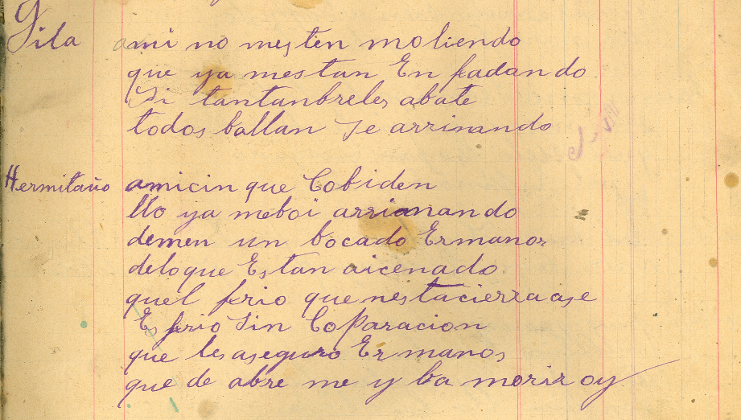 Gila ami no mesten moliendo
que ya mestan Enfadando
Si tantanbreles abate
todos ballan Se arrimando
Hermitaño amicin que Cobiden
llo ya meboi arrimando
demen un bocado Ermanos
deloque Estan aicenado
quel frio que nestacierra ase
Es frio Sin Coparacion
que les aseguro Ermanos
que de abre me y ba morir oy